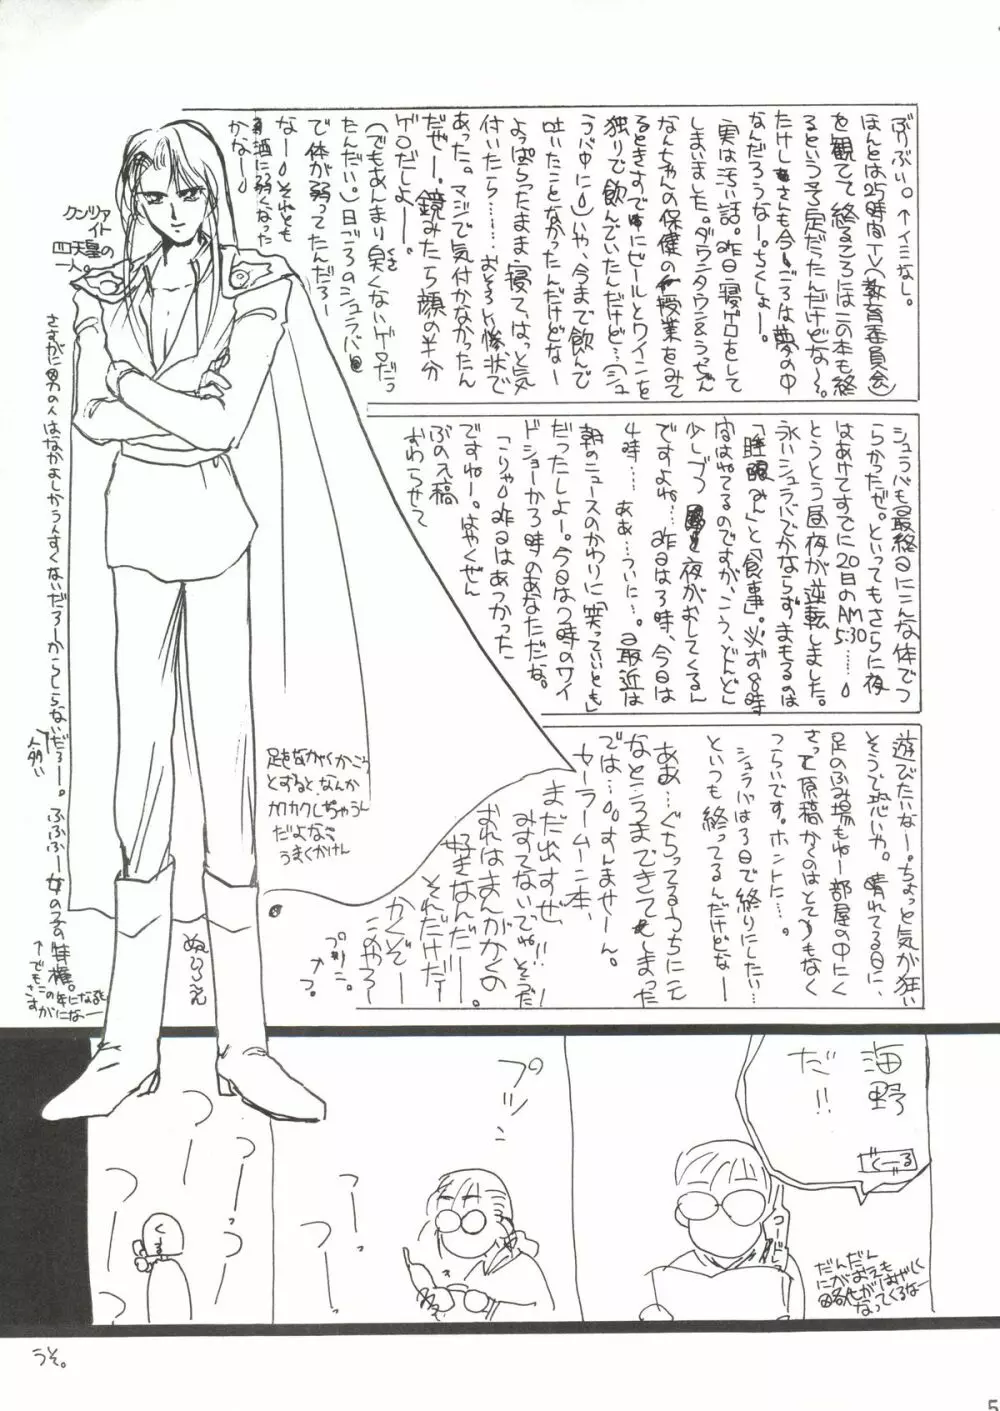 ぶりぶい。←イミなし。
ほんとは25時間TV(教育委員会)
を観てて終るころにはこの本も終
るという予定だったんだけどな〜〜。
たけしさんも今ごろは夢の中
なんだろうなー。ちくしょー。
実は汚い話。昨日、寝ゲロをして
しまいました。ダウンタウン&うっちゃん
なんちゃんの保健の授業をみて
るときすでにビールとワインを
独りで飲んでいたんだけど…(シュ
ラバ中に)いや、今まで飲んで
吐いたことなかったんだけどなー
よっぱらったまま寝て、はっと気
付いたら……おそろしい惨状で
あった。マジで気付かなかったん
だぜー。鏡みたら顔の半分
ゲロだしよー。
(でもあんまり臭くないゲロだっ
くさ
たんだい。)日ごろのシュラバ
で体が弱ってたんだろー
なー それとも
酒に弱くなった
かなー
シュラバも最終日にこんな体でつ
らかったぜ。といってもさらに夜
はあけてすでに20日のAM5:30……
とうとう昼夜が逆転しました。
永いシュラバでかならずまもるのは
「睡眠」と「食事」。必ず8時
間はねてるのですが、こう、どんどん
少しづつ夜がおしてくるん
ですよね…昨日は3時、今日は
4時…ああ…ついに…。最近は
朝のニュースのかわりに「笑っていいとも」
だったしよー。今日は2時のワイ
ドショーか3時のあなただな。
こりゃ 昨日はあつかった
ですねー。はやくぜん
ぶの入稿
おわらせて
遊びたいなー。ちょっと気が狂い
そうで恐いや。晴れてる日に、
足のふみ場もねー部屋の中にく
さって原稿かくのはとてつもなく
つらいです。ホントに…。
シュラバは3日で終りにしたい…
といつも終ってるんだけどなー
ああ…ぐちってるうちにこん
なところまできてしまった
では…。すんませーん。
セーラームーン本、
まだ出すぜ!!
みすてないでね。そうだ
おれはまんがかくの
好きなんだ!!
それだけだー
かくぞー
このやろー
プリニ。
←つ。
クンツァ
イト
四天皇の
一人。
さすがに男の人はなかよしかうんすくないだろーからしらないだろー。ふふふー女の子の特権。
人多い
↑でもこの年になると
さすがになー
足をながくかこう
とすると、なんか
カクカクしちゃうん
だよな。
うまくかけん
ぬりろえ
海野
だ!!
ぐーる
コードレス
だんだん
にがおえも はやく
略化が
なってくるなー
プツン
つー
つー
つー
つー
つー
つー
ぐーる
うそ。
5